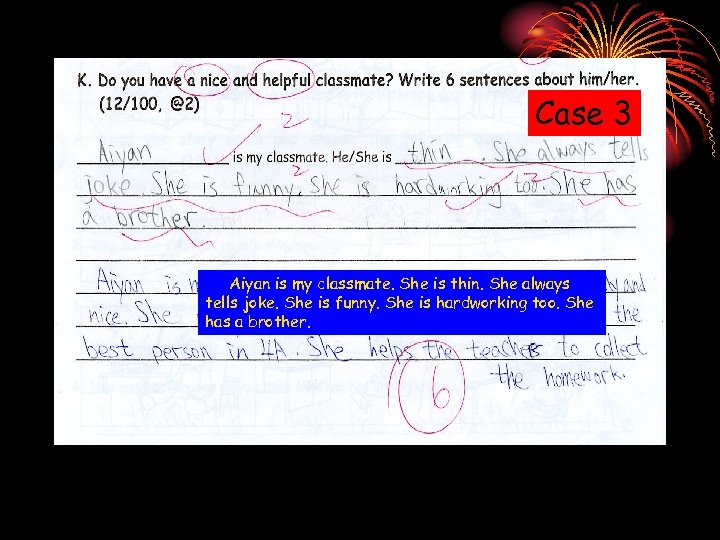 K. Do you have a nice and helpful classmate? Write 6 sentences about him/her.
(12/100, @2)
Case 3
2
Aiyan is my classmate. He/She is thin. She always tells
2
joke. She is funny. She is hardworking too. She has
2
a brother.
Aiyan is my classmate. She is thin. She always
tells joke. She is funny. She is hardworking too. She
has a brother.
Aiyan is and
nice. She the
best person in 4A. She helps the teachers to collect
the homework.
6